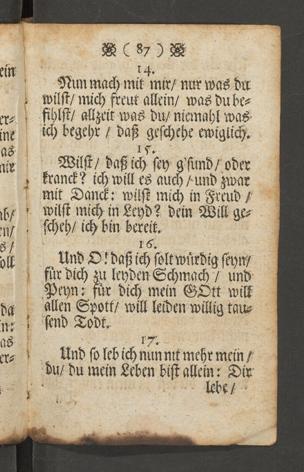 ( 87 )
14.
Nun mach mit mir/ nur was du
wilst/ mich freut allein/ was du be-
fihlst/ allzeit was du/ niemahl was
ich begehr/ daß geschehe ewiglich.
15.
Wilst/ daß ich sey g'sund/ oder
kranck? ich will es auch/ und zwar
mit Danck: wilst mich in Freud/
wilst mich in Leyd? dein Will ge-
scheh/ ich bin bereit.
16.
Und O! daß ich solt würdig seyn/
für dich zu leyden Schmach/ und
Peyn: für dich mein GOtt will
allen Spott/ will leiden willig tau-
send Todt.
17.
Und so leb ich nun nit mehr mein/
du/ du mein Leben bist allein: Dir
lebe/